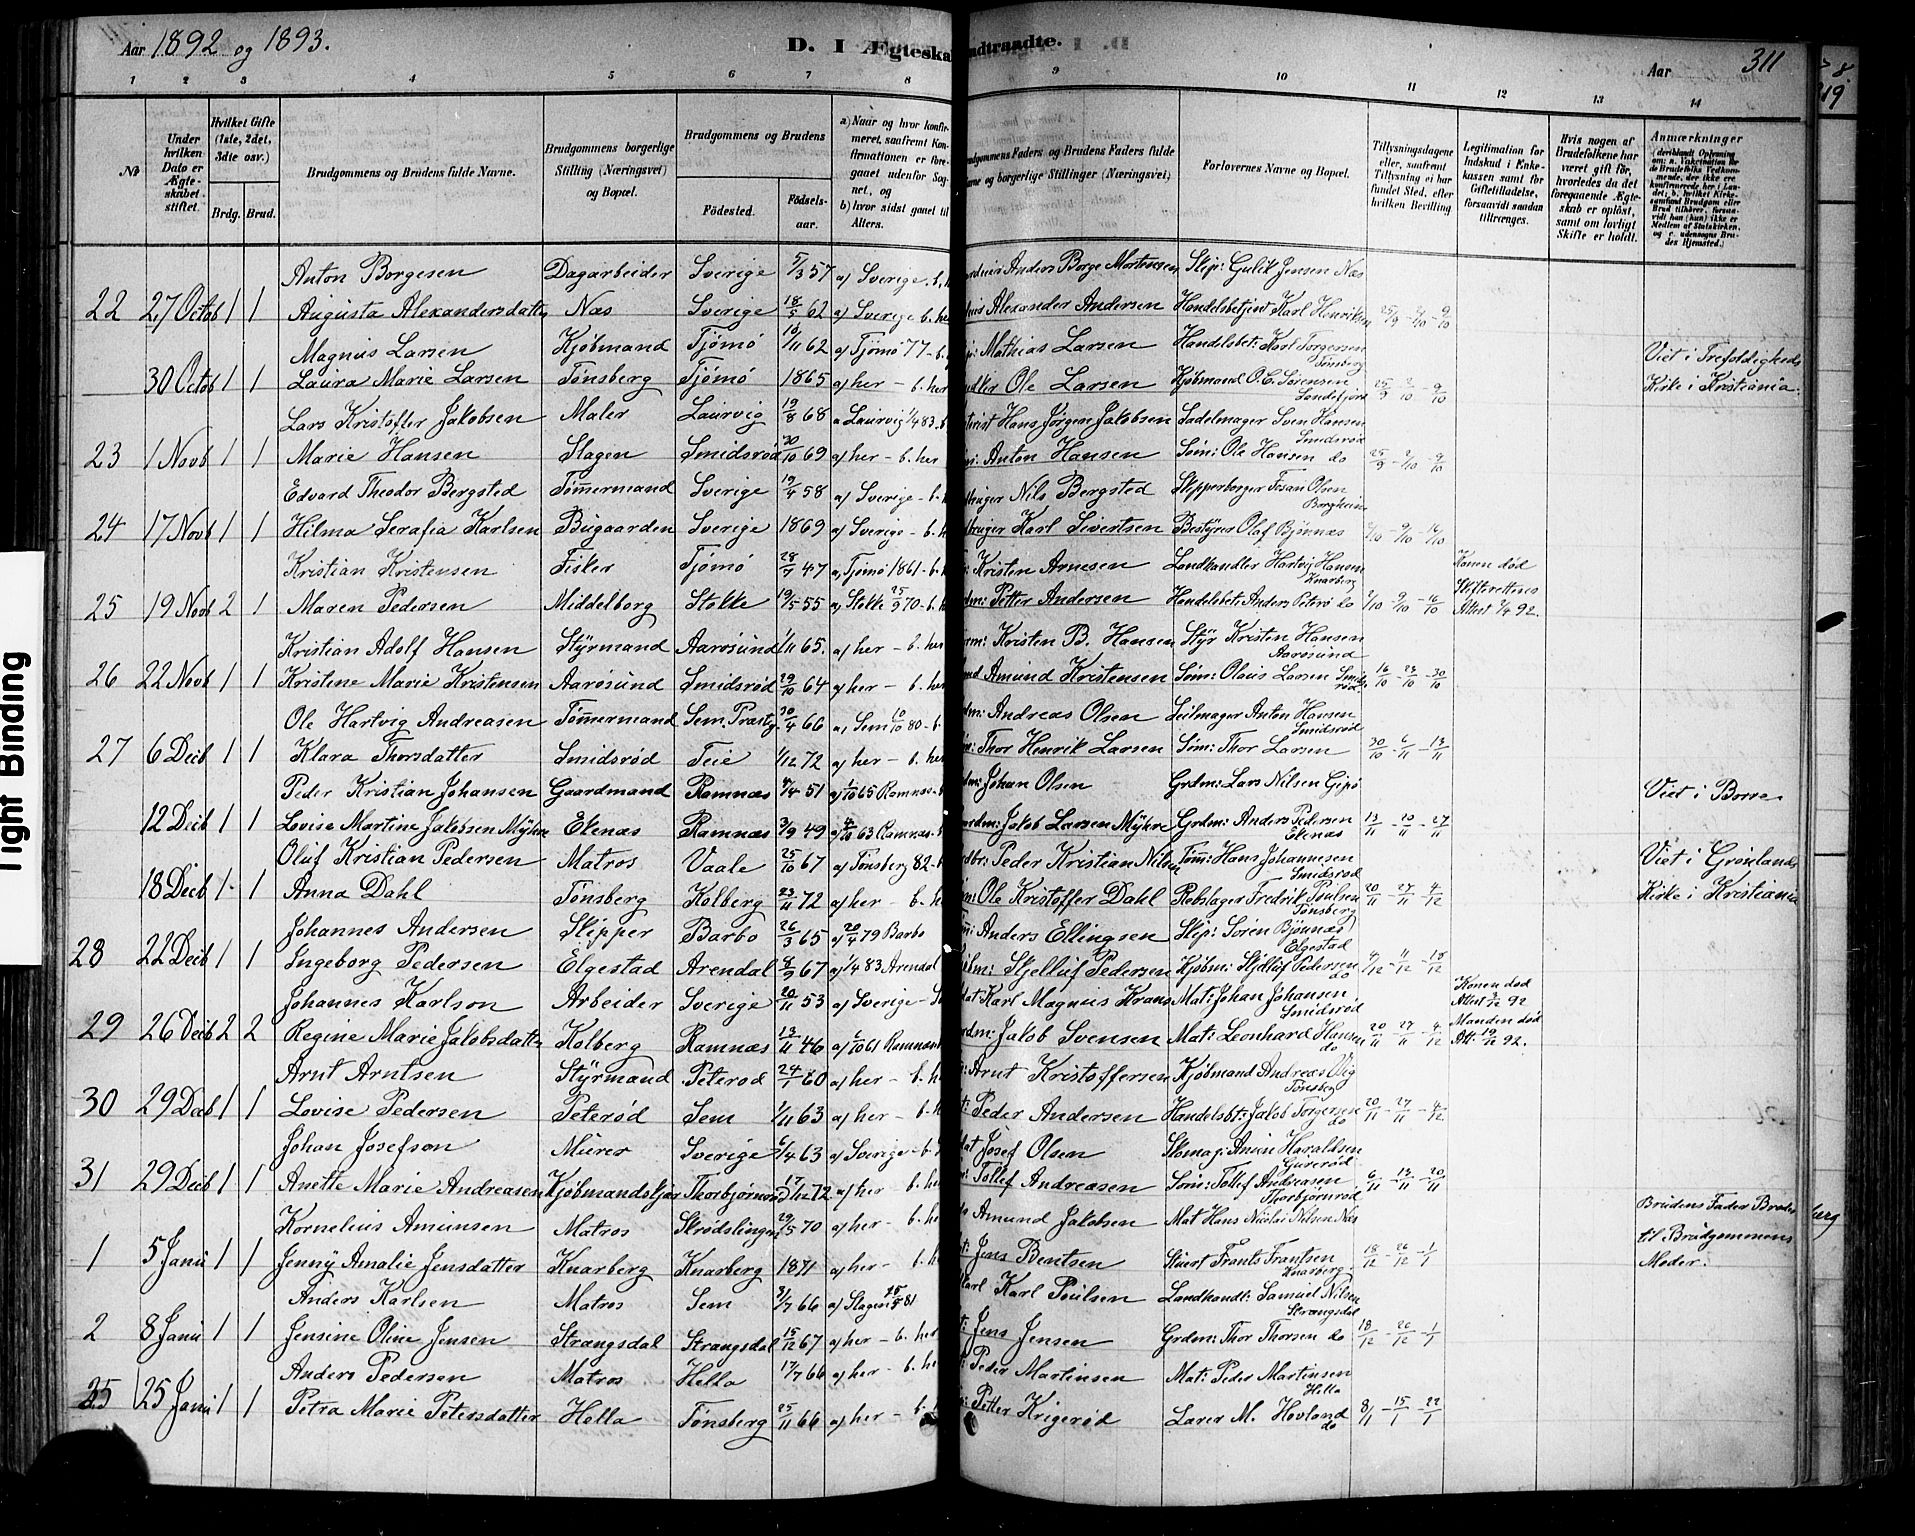 Aar 1892 og 1893.
D. I Ægteska
ndtraadte.
Aar 311
1 2 3 4 5 6 7 8 9 10 11 12 13 14
No
Under hvilken Dato er Ægteskabet stiftet.
Hvilket Gifte (1ste, 2det, 3die osv.)
Brdg. Brud.
Brudgommens og Brudens fulde Navne.
Brudgommens borgerlige Stilling (Næringsvei) og Bopæl.
Brudgommens og Brudens
Fødested. Fødselsaar.
a) Naar og hvor konfirmeret, saafremt Konfirmationen er foregaaet udenfor Sognet, og
b) hvor sidst gaaet til Alters.
udgommens Faders og Brudens Faders fulde
vne og borgerlige Stillinger (Næringsvei)
Forlovernes Navne og Bopæl.
Tillysningsdagene eller, saafremt Tillysning ei har fundet Sted, efter hvilken Bevilling
Legitimation for Indskud i Enkekassen samt for Giftetilladelse, forsaavidt saadan tiltrænges.
Hvis nogen af Brudefolkene har været gift før, hvorledes da det foregaaende Ægteskab er opløst, samt om lovligt Skifte er holdt.
Anmærkninger
Anton Borgesen Dagarbeider Sverige 5/3 57 a) Sverige. Anders Borge Mortensen Skip: Gulik Jensen Næs
22 27 Octob 1 1 Augusta Alexandersdatter Næs Sverige 18/5 62 a) Sverige b. her Alexander Andersen Handelsbetjent Karl Henriksen 25/9 - 2/10 - 9/10
Magnus Larsen Kjøbmand Tjømø 10/11 62 a) Tjømø 77 - b. Mathias Larsen Handelsbet: Karl Torgersen Tønsberg Viet i Trefoldigheds
30 Octob 1 1 Laura Marie Larsen Tønsberg Tjømø 1865 a) her - b. her Ole Larsen Kjøbmand O. C. Sørensen Sandefjord 25/9 - 2/10 - 9/10 Kirke i Kristiania.
Lars Kristoffer Jakobsen Maler Laurvig 19/8 68 a Laurvig 1/4 83 Hans Jørgen Jakobsen Sadelmager Sven Hansen Smidsrød
23 1 Novb 1 1 Marie Hansen Slagen Smidsrød 30/10 69 a) her - b. her Anton Hansen Søm: Ole Hansen do 25/9 - 2/10 - 9/10
Edvard Theodor Bergsted Tømmermand Sverige 19/4 58 a) Sverige - b. Nils Bergsted Skipperborger Olsen Borgheim
24 17 Novb 1 1 Hilma Serafia Karlsen Bugaarden Sverige 1869 a) Sverige - b. Karl Sivertsen Bestyrer Olaf Bjønnæs 2/10 - 9/10 - 16/10
Kristian Kristensen Fisker Tjømø 28/7 47 a) Tjømø 1861 - b. Kristen Arnesen Landhandler Hartvig Hansen Knarberg Konen død
25 19 Novb 2 1 Maren Pedersen Middelborg Stokke 19/5 55 a) Stokke 25/9 70 - b. Petter Andersen Handelsbet: Anders Peterø do 2/10 - 9/10 - 16/10 Skifterettens Attest 92.
Kristian Adolf Hansen Styrmand Aarøsund 1/11 65. a) her - b. her Kristen B. Hansen Styr Kristen Hansen Aarøsund
26 22 Novb 1 1 Kristine Marie Kristensen Aarøsund Smidsrød 29/10 64 a) her - b. her Amund Kristensen Søm: Olaus Larsen Smidsrød 16/10 - 23/10 - 30/10
Ole Hartvig Andreasen Tømmermand Sem. Præstg. 30/4 66 a) Sem 10/10 80 - b. Andreas Olsen Seilmager Anton Hansen Smidsrød
27 6 Decb 1 1 Klara Thorsdatter Smidsrød Teie 1/12 72 a) her - b. her Thor Henrik Larsen Søm: Thor Larsen 30/10 - 6/11 - 13/11
Peder Kristian Johansen Gaardmand Ramnæs 51 a) 1/10 65 Ramnæs - Johan Olsen Grdm: Lars Nilsen Gipø Viet i Borre
12 Decb 1 1 Lovise Martine Jakobsen Myhre Ekenæs Ramnæs 3/9 49 a) 4/10 63 Ramnæs - Jakob Larsen Myhre Grdm: Anders Pedersen Ekenæs 13/11 20/11 - 27/11
Oluf Kristian Pedersen Matros Vaale 25/10 67 a) Tønsberg 82 - b Peder Kristian Nilsen Tøm: Hans Johannesen Smidsrød Viet i Grønlands
18 Decb 1 - 1 Anna Dahl Tønsberg Kolberg 23/11 72 a) her - b. h Ole Kristoffer Dahl Rebslager Fredrik Poulsen Tønsberg 20/11 - 27/11 - 4/12 Kirke i Kristiania
Johannes Andersen Skipper Barbo 26/3 65 a) 20/4 79 Barbo Anders Ellingsen Skip: Søren Bjønnæs Elgestad
28 22 Decb 1 1 Ingeborg Pedersen Elgestad Arendal 8/9 67 a) 1/4 83 Arendal Skjelluf Pedersen Kjøbm: Skjelluf Pedersen do 4/12 11/12 - 18/12
Johannes Karlson Arbeider Sverige 20/11 53 a) Sverige - Karl Magnus Krans Mat: Johan Johansen Smidsrød Konen død Attest 92
29 26 Decb 2 2 Regine Marie Jakobsdatter Kolberg Ramnæs 13/11 46 a) 6/10 61 Ramnæs Jakob Svensen Mat: Leonhard Hansen do 20/11 - 27/11 - 4/12 Manden død Att: 19/12 92.
Arnt Arntsen Styrmand Peterød 24/1 60 a) her - b. he Arnt Kristoffersen Kjøbmand Andreas Vig Tønsberg
30 29 Decb 1 1 Lovise Pedersen Peterød Sem 1/11 63 a) her - b. h Peder Andersen Handelsbt: Jakob Torgersen do 20/11 - 27/11 - 4/12
Johan Josefson Murer Sverige 6/4 63 a) Sverige - b. Josef Olsen Skomag: Anun Haraldsen
31 29 Decb 1 1 Anette Marie Andreasen Kjøbmandskjær Thorbjørnrød 17/12 72 a) her - b. her Tollef Andreasen Søm: Tollef Andreasen Thorbjørnrød 6/11 - 13/11 - 20/11
Kornelius Amunsen Matros Skrødslingen 29/5 70 a) her - b. her Amund Jakobsen Mat Hans Nicolai Nilsen Næs Brudens Fader Broder
1 5 Janu 1 1 Jenny Amalie Jensdatter Knarberg Knarberg 1871 a) her - b. he Jens Bentsen Stuert Frants Frantsen Knarberg 18/12 - 26/12 - 1/1 til Brudgommens Moder.
Anders Karlsen Matros Sem 31/7 66 a) Slagen 81 Karl Poulsen Landhandl: Samuel Nilsen Strængsdal
2 8 Janu 1 1 Jensine Oline Jensen Strængsdal Strængsdal 15/12 67 a) her - b. her Jens Jensen Grdm: Thor Thorsen do 18/12 - 26/12 - 1/1
Anders Pedersen Matros Hella 17/7 66 a) her - b. he Peder Martinsen Mat: Peder Martinsen Hella
25 Janu 1 1 Petra Marie Petersdatter Hella Tønsberg 25/11 66 a) her - b. h Petter Krigerød Lærer M. Hovland do 8/1 - 15/1 - 22/1
Tight Binding